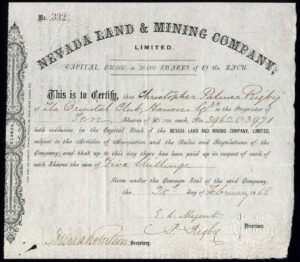 No. 332
NEVADA LAND & MINING COMPANY,
LIMITED.
CAPITAL £50,000 IN SHARES OF EACH.
This is to Certify, that Christopher Palmer Rigby
of The Oriental Club, Hanover Sqre. is the Proprietor of
Ten Shares of each No. 3962 @ 3971
both inclusive in the Capital Stock of the NEVADA LAND AND MINING COMPANY, LIMITED,
subject to the Articles of Association and the Rules and Regulations of the
Company; and that up to this day there has been paid up in respect of each of
such Shares the sum of Five Shillings
Given under the Common Seal of the said Company,
the 25th day of February 1868
Nugent
C. P. Rigby
Directors.
Secretary.